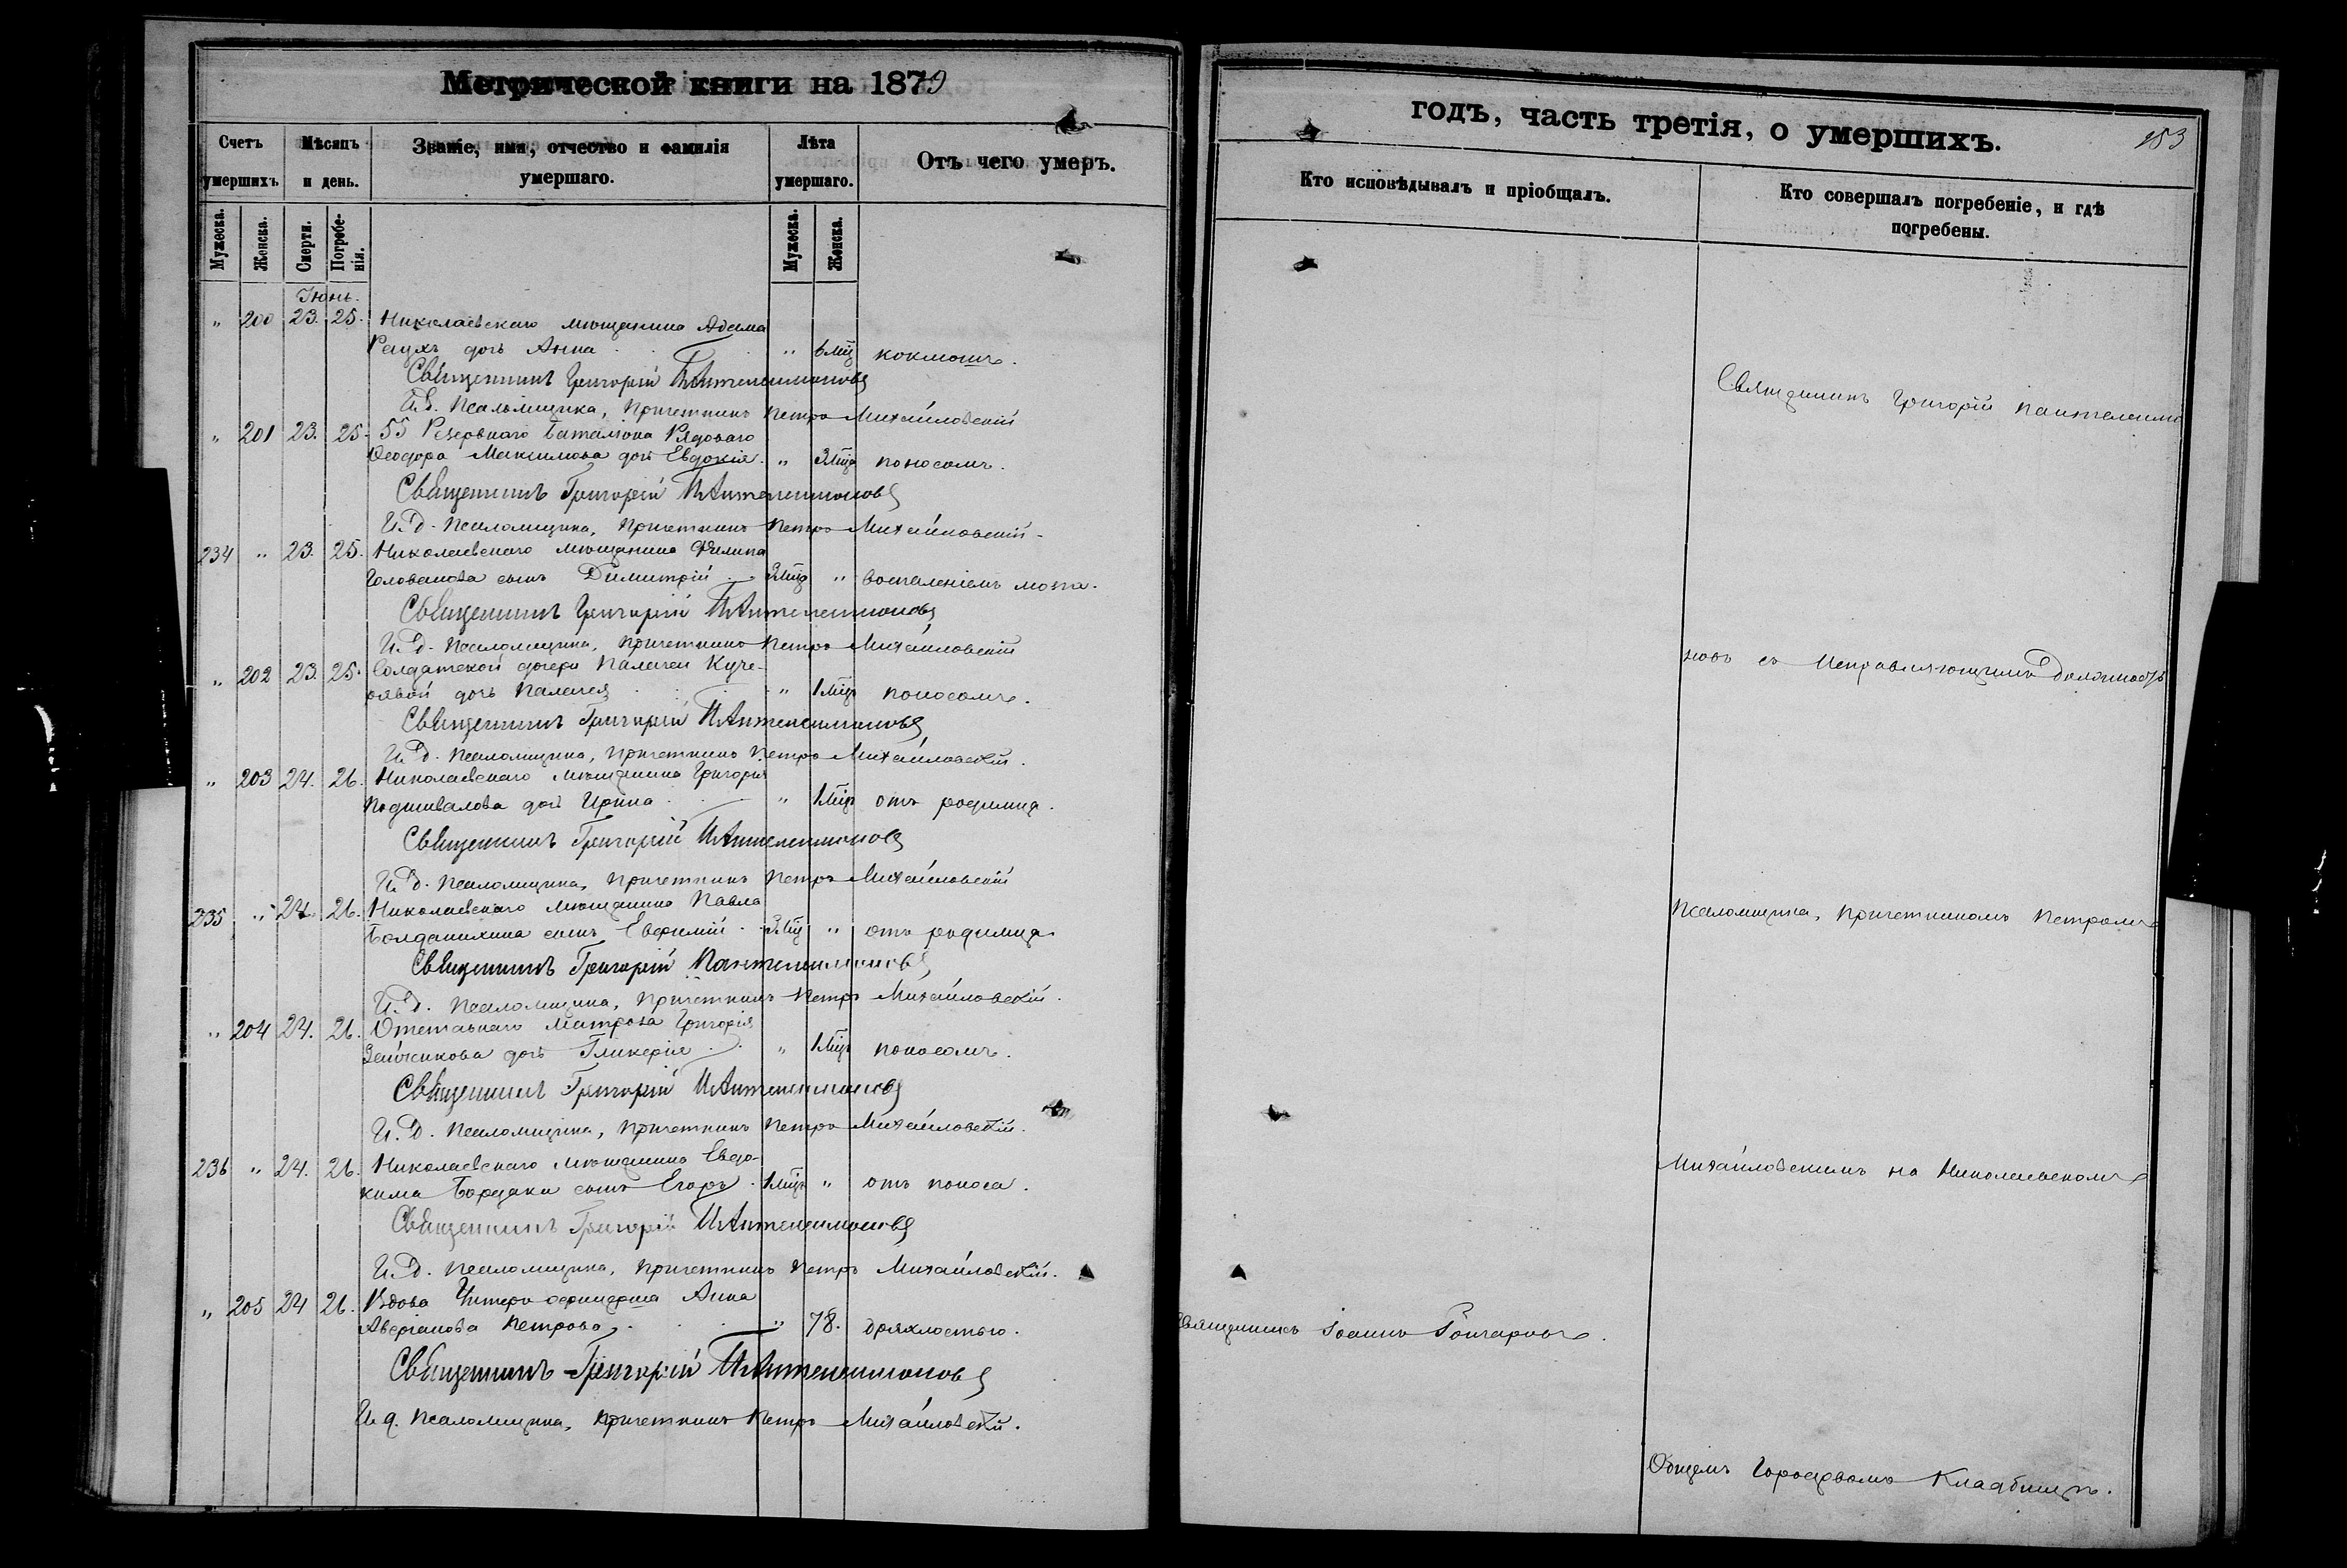 Метрической книги на 1879
Счетъ умершихъ
Мѣсяцъ и день.
Званіе, имя, отчество и фамилія умершаго.
Лѣта умершаго.
Отъ чего умеръ.
Мужеска. Женска. Смерти. Погребенія. Мужеска. Женска.
Іюнь.
" 200 23. 25. Николаевскаго мѣщанина Адама
дочь Анна " 6 мцъ коклюшъ.
Священникъ Григорій Пантелеимоновъ
И.д. Псаломщика, Причетникъ Петръ Михайловскій
" 201 23. 25. 55 Резервнаго баталіона Рядоваго
Ѳеодора Максимова дочь Евдокія. " 3 мца поносомъ.
Священникъ Григорій Пантелеимоновъ
И.д. Псаломщика, Причетникъ Петръ Михайловскій
234 " 23. 25. Николаевскаго мѣщанина Филипа
Голованова сынъ Димитрій 3 мца " воспаленіемъ мозга.
Священникъ Григорій Пантелеимоновъ
И.д. Псаломщика, Причетникъ Петръ Михайловскій
" 202 23. 25. Солдатской дочери Палагеи Куче-
рявой дочь Палагея " 1 мцъ поносомъ.
Священникъ Григорій Пантелеимоновъ
И.д. Псаломщика, Причетникъ Петръ Михайловскій.
" 203 24. 26. Николаевскаго мѣщанина Григорія
Подшивалова дочь Ирина " 1 мцъ отъ родимца.
Священникъ Григорій Пантелеимоновъ
И.д. Псаломщика, Причетникъ Петръ Михайловскій
235 " 24. 26. Николаевскаго мѣщанина Павла
сынъ Евфимій 3 мц " отъ родимца
Священникъ Григорій Пантелеимоновъ
И.д. Псаломщика, Причетникъ Петръ Михайловскій.
" 204 24. 26. Отставнаго Матроса Григорія
Зайчикова дочь Гликерія " 1 мцъ поносомъ.
Священникъ Григорій Пантелеимоновъ
И.д. Псаломщика, Причетникъ Петръ Михайловскій.
236 " 24. 26. Николаевскаго мѣщанина Евдо-
кима сынъ Егоръ 1 мцъ " отъ поноса.
Священникъ Григорій Пантелеимоновъ
И.д. Псаломщика, Причетникъ Петръ Михайловскій.
" 205 24 26. Вдова Унтеръ офицерша Анна
Аверіанова Петрова " 78. дряхлостью.
Священникъ Григорій Пантелеимоновъ
И.д. Псаломщика, Причетникъ Петръ Михайловскій.
годъ, часть третія, о умершихъ.
183
Кто исповѣдывалъ и пріобщалъ.
Кто совершалъ погребеніе, и гдѣ погребены.
Священникъ Григорій Пантелеимо
новъ съ Исправляющимъ Должность
Псаломщика, Причетникомъ Петромъ
Михайловскимъ на Николаевскомъ
Священникъ Іоаннъ Гончаровъ.
Общемъ Городскомъ Кладбищѣ.